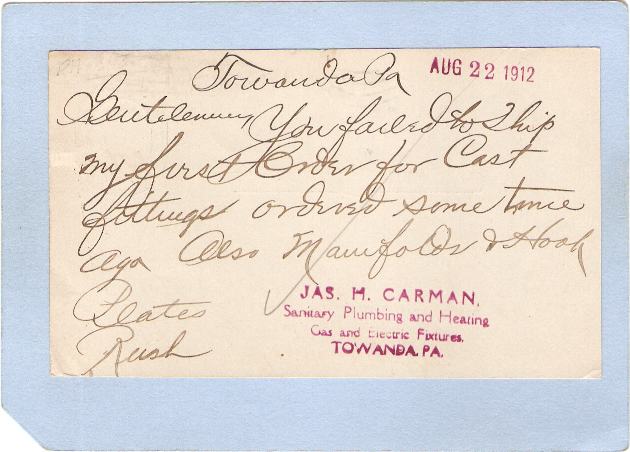 Towanda Pa
AUG 22 1912
Gentelemen, You failed to Ship
my first Order for Cast
fittings ordered some time
ago Also Manifolds & Hook
Plates
Rush
JAS. H. CARMAN,
Sanitary Plumbing and Heating
Gas and Electric Fixtures,
TOWANDA, PA.